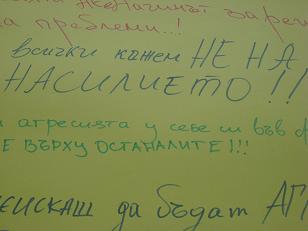 начинът за
проблеми..!
всички кажем НЕ НА
НАСИЛИЕТО!!
агресията у себе си във
ВЪРХУ ОСТАНАЛИТЕ!!!
да бъдат